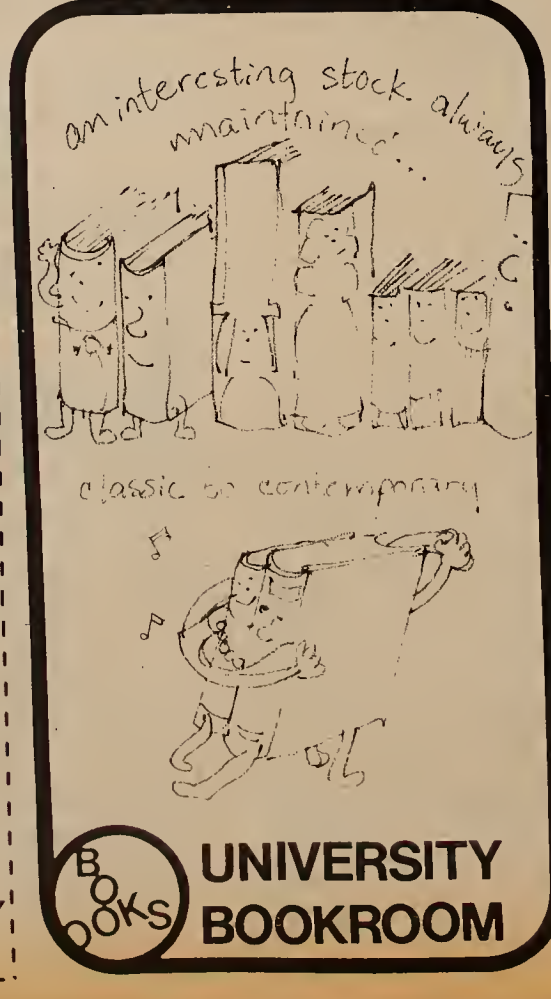 an interesting stock always
maintained...
classic to contemporary
BOOKS
UNIVERSITY
BOOKROOM